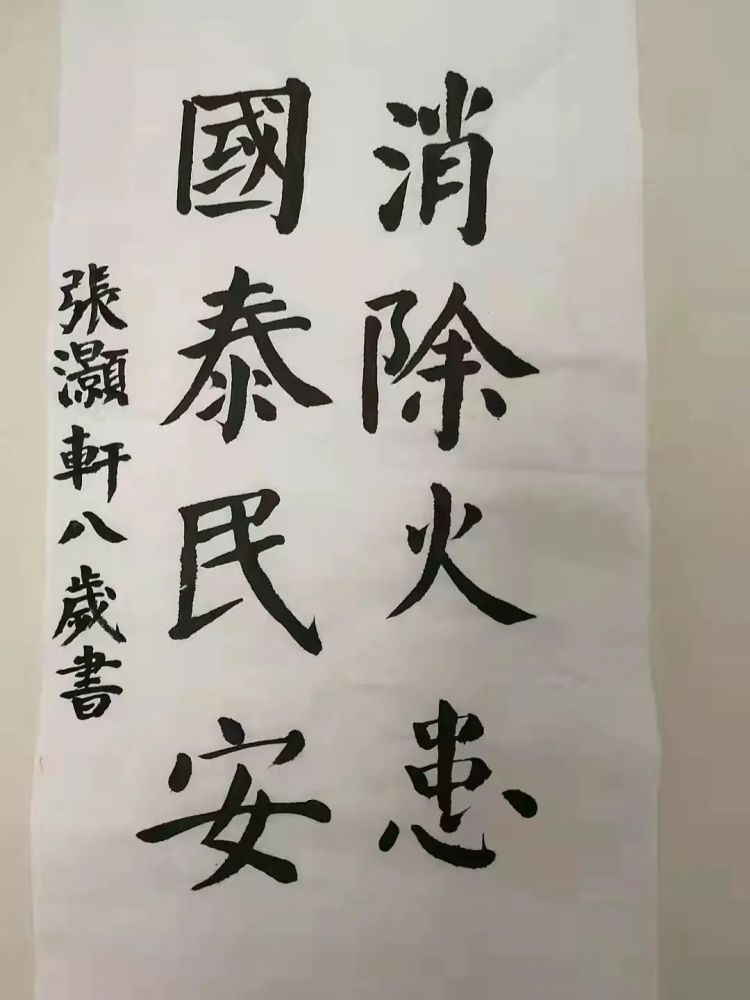 消除火患
國泰民安
張灝軒八歲書